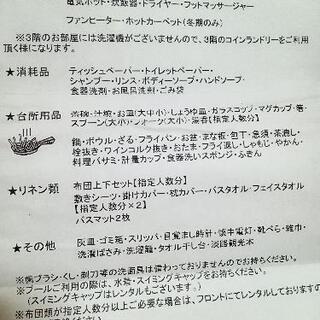 電気ポット・炊飯器・ドライヤー・フットマッサージャー
ファンヒーター・ホットカーペット(冬期のみ)
※3階のお部屋には洗濯機がございませんので、3階のコインランドリーをご利用
頂く様になります。
★消耗品 ティッシュペーパー・トイレットペーパー・
シャンプー・リンス・ボディーソープ・ハンドソープ・
食器洗剤・お風呂洗剤・ごみ袋
★台所用品 茶碗・汁椀・お皿(大中小)・しょうゆ皿・ガラスコップ・マグカップ・箸・
スプーン(大小)・フォーク(大小)・
鍋・ボウル・ざる・フライパン・お盆・まな板・包丁・急須・茶通し・
栓抜き・ワインコルク抜き・おたま・フライ返し・しゃもじ・やかん・
料理バサミ・計量カップ・食器洗いスポンジ・ふきん
★リネン類 布団上下セット【指定人数分】
敷きシーツ・掛けカバー・枕カバー・バスタオル・フェイスタオル
【指定人数分×2】
バスマット2枚
★その他 灰皿・ゴミ箱・スリッパ・目覚まし時計・懐中電灯・靴べら・雑巾・
洗濯ばさみ・洗濯籠・タオル干し台・淡路観光本
※歯ブラシ・くし・剃刀等の洗面具は備わっておりませんのでお持ちください。
※プールご利用の際は、水着・スイミングキャップをお持ちください。
(スイミングキャップはレンタルもございます。)
※布団類が指定人数分以上ご必要な場合は、フロントにてレンタルしておりますの